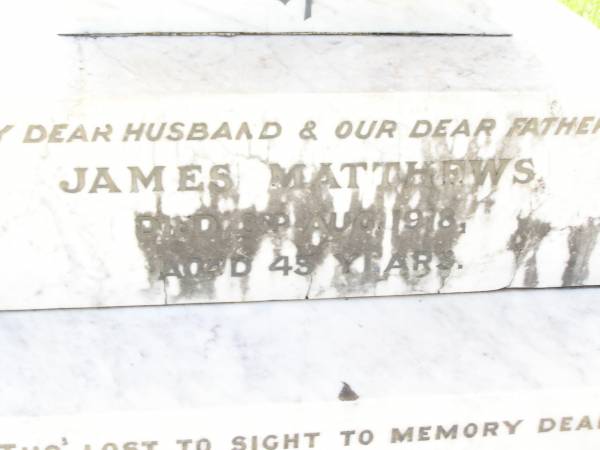 Y DEAR HUSBAND & OUR DEAR FATHER
JAMES MATTHEWS
DIED 3RD AUG. 1918,
AGED 45 YEARS.
THO' LOST TO SIGHT TO MEMORY DEAR